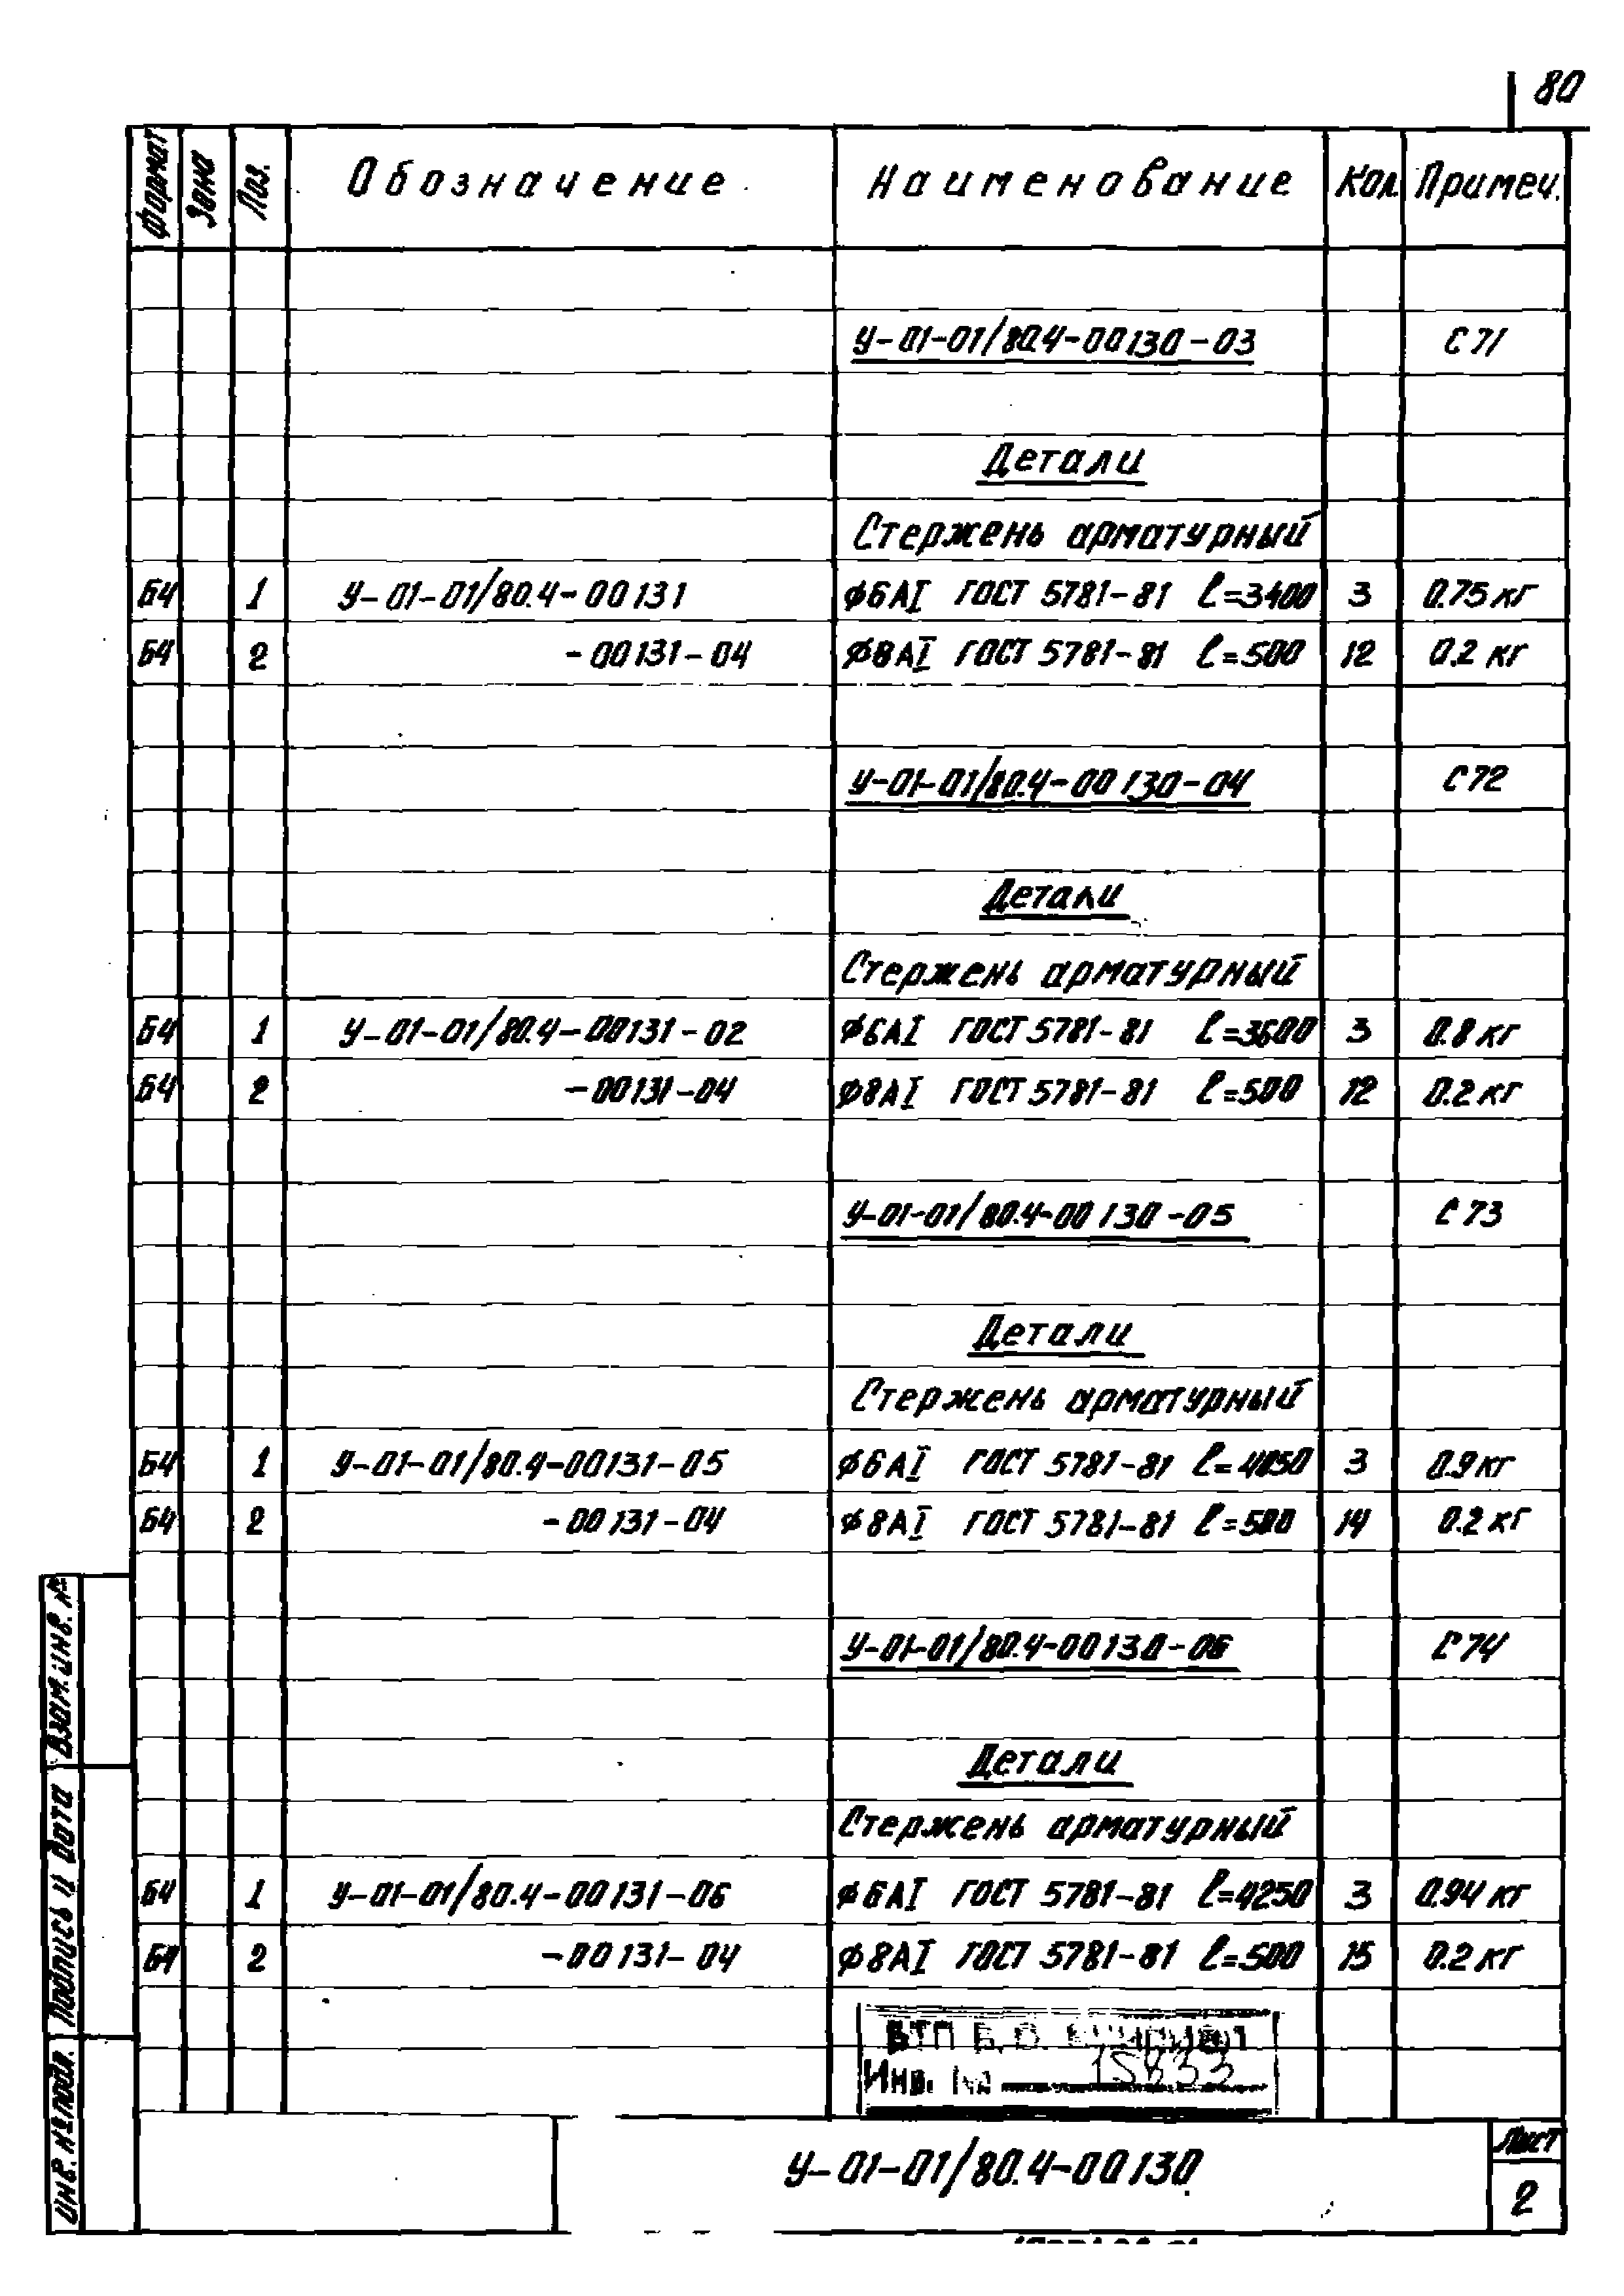 80
Формат Зона Поз. Обозначение Наименование Кол. Примеч.
У-01-01/80.4-00130-03 С71
Детали
Стержень арматурный
БЧ 1 У-01-01/80.4-00131 ϕ6АI ГОСТ 5781-81 ℓ=3400 3 0.75 кг
БЧ 2 -00131-04 ϕ8АI ГОСТ 5781-81 ℓ=500 12 0.2 кг
У-01-01/80.4-00130-04 С72
Детали
Стержень арматурный
БЧ 1 У-01-01/80.4-00131-02 ϕ6АI ГОСТ 5781-81 ℓ=3600 3 0.8 кг
БЧ 2 -00131-04 ϕ8АI ГОСТ 5781-81 ℓ=500 12 0.2 кг
У-01-01/80.4-00130-05 С73
Детали
Стержень арматурный
БЧ 1 У-01-01/80.4-00131-05 ϕ6АI ГОСТ 5781-81 ℓ=4050 3 0.9 кг
БЧ 2 -00131-04 ϕ8АI ГОСТ 5781-81 ℓ=500 14 0.2 кг
У-01-01/80.4-00130-06 С74
Детали
Стержень арматурный
БЧ 1 У-01-01/80.4-00131-06 ϕ6АI ГОСТ 5781-81 ℓ=4250 3 0.94 кг
БЧ 2 -00131-04 ϕ8АI ГОСТ 5781-81 ℓ=500 15 0.2 кг
Взам.инв. №
Подпись и дата
Инв. № подл.
Инв. № 15833
У-01-01/80.4-00130
Лист
2